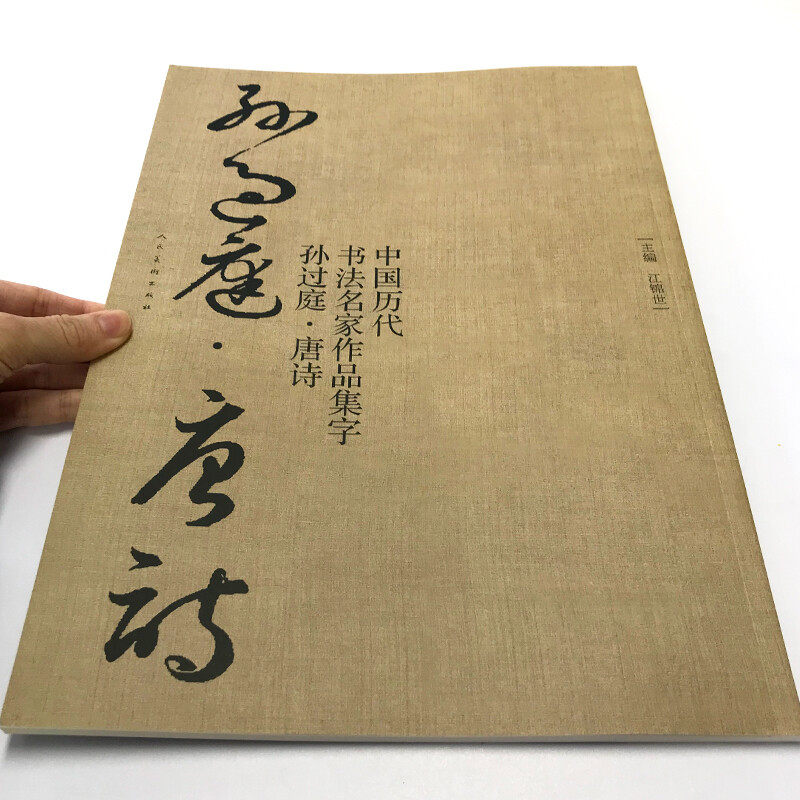 主编 江锦世
中国历代
书法名家作品集字
孙过庭·唐诗
孙过庭·唐诗
人民美术出版社